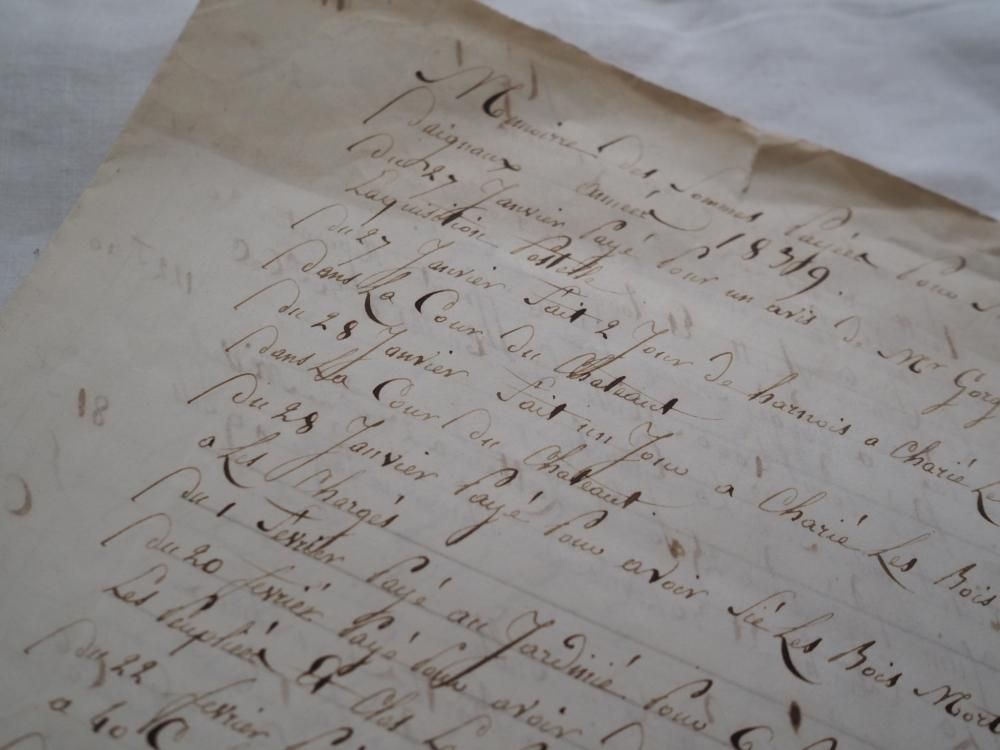 Memoire des Sommes Payéer Pour
Daignaux Année 1839.
Du 27 Janvier Payé Pour un avis de Mr Gorg
Laquisition
Du 27 Janvier Fait 2 Jour de harnois a Charié Le
Dans La Cour du Chateaut
Du 28 Janvier Fait un Jour a Charié Les Bois
Dans La Cour Du Chateaut.
Du 28 Janvier Payé Pour avoir Sié Les Bois Mort
a Les Chargés
Du 1 Fevrier Payé au Jardinié Pour
Du 20 fevriér Payé Pour avoir
Les Peupliér Et
Du 22 fevrier
a 40 C